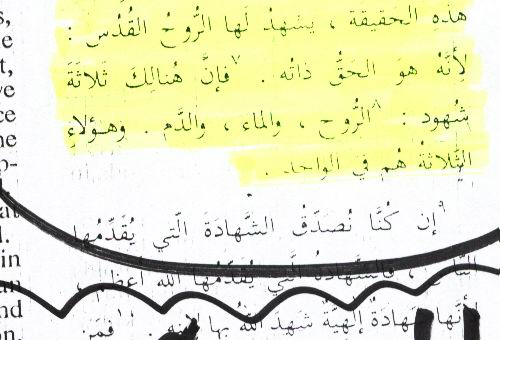 هذه الحَقيقة ، يشهدُ لَها الرُّوحُ القُدُس :
لأَنَّهُ هوَ الحَقُّ ذاتُه . ٧ فَإنَّ هُنالِكَ ثَلاثَةَ
شُهود : ٨ الرُّوح ، والماء ، والدَّم . وهـؤلاءِ
الثَّلاثةُ هُم في الواحد .
٩ إن كُنَّا نُصَدِّقُ الشَّهادَةَ الَّتي يُقَدِّمُها
النَّاسُ ، فالشَّهادةُ الَّتي يُقَدِّمُها الله أعظم ،
لأنَّها شَهادةٌ إلهيَّةٌ شَهِدَ اللهُ بها لابنِه . ١٠ فَمَن